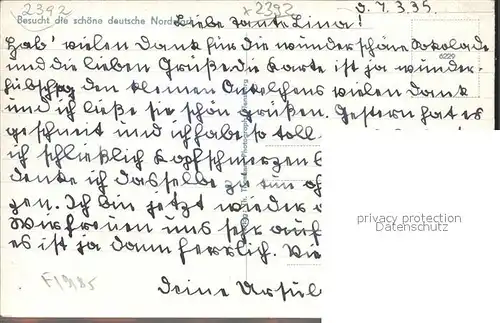 2392
x 2392
D. 7.3.35.
Besucht die schöne deutsche Nordsee
Liebe Tante Lina!
Hab' vielen Dank für die wunderschöne Schokolade
und die lieben Grüße die Karte ist ja wunder-
hübsch den kleinen vielen Dank
und ich ließe sie schön grüßen. Gestern hat es
geschneit und ich habe so toll
ich schließlich Kopfschmerzen
denke ich dasselbe zu tun
gen. Ich bin jetzt wieder
Wir freuen uns sehr auf
es ist ja dann herrlich. Vie
Deine Ursul
6259
privacy protection
Kunden-Nr.
F1985